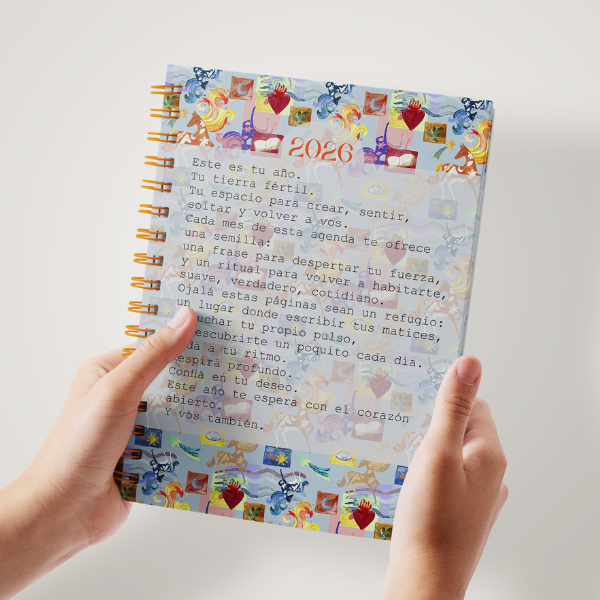 2026
Este es tu año.
Tu tierra fértil.
Tu espacio para crear, sentir,
soltar y volver a vos.
Cada mes de esta agenda te ofrece
una semilla:
una frase para despertar tu fuerza,
y un ritual para volver a habitarte,
suave, verdadero, cotidiano.
Ojalá estas páginas sean un refugio:
un lugar donde escribir tus matices,
tu propio pulso,
un poquito cada día.
a tu ritmo.
profundo.
Confiá en tu deseo.
Este año te espera con el corazón
abierto.
Y vos también.